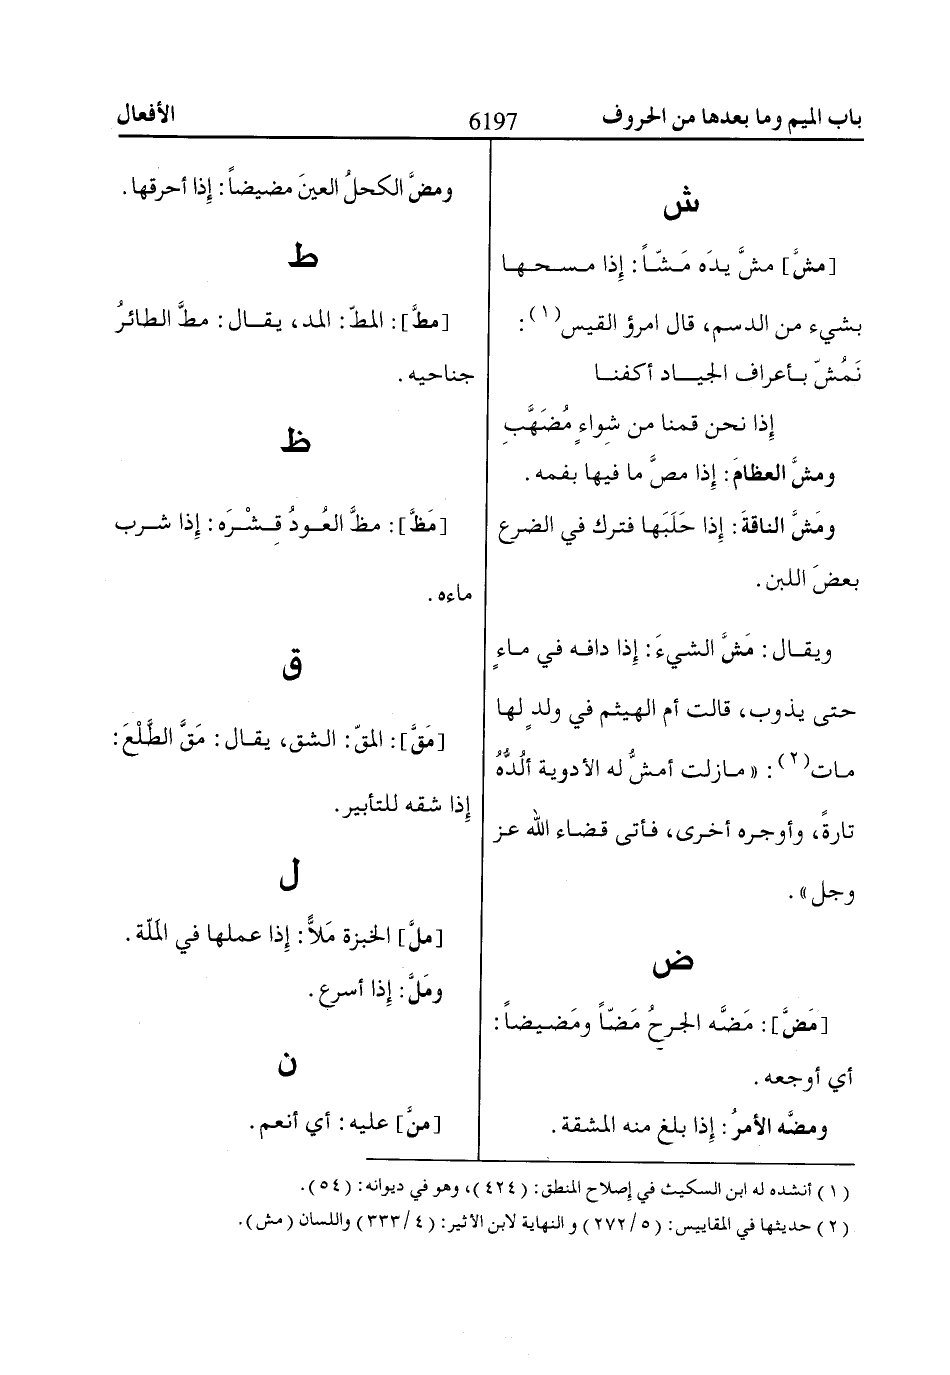 باب الميم وما بعدها من الحروف
6197
الأفعال
ش
[مشَّ] مشَّ يدَه مَشّاً: إِذا مسحها
بشيء من الدسم، قال امرؤ القيس(١):
نَمُشّ بأعراف الجياد أكفنا
إِذا نحن قمنا من شواءٍ مُضَهَّبِ
ومشَّ العظامَ: إِذا مصَّ ما فيها بفمه.
ومَشَّ الناقةَ: إِذا حَلَبَها فترك في الضرع
بعضَ اللبن.
ويقال: مَشَّ الشيءَ: إِذا دافه في ماءٍ
حتى يذوب، قالت أم الهيثم في ولدٍ لها
مات(٢): «مازلت أمشُّ له الأدوية ألُدُّهُ
تارةً، وأوجره أخرى، فأتى قضاء الله عز
وجل».
ض
[مَضَّ]: مَضَّه الجرحُ مَضّاً ومَضيضاً:
أي أوجعه.
ومضَّه الأمرُ: إِذا بلغ منه المشقة.
ومضَّ الكحلُ العينَ مضيضاً: إِذا أحرقها.
ط
[مطَّ]: المطّ: المد، يقال: مطَّ الطائرُ
جناحيه.
ظ
[مَظَّ]: مظَّ العُودُ قِشْرَه: إِذا شرب
ماءه.
ق
[مَقَّ]: المقّ: الشق، يقال: مَقَّ الطَّلْعَ:
إِذا شقه للتأبير.
ل
[ملَّ] الخبزة مَلاًّ: إِذا عملها في المَلّة.
ومَلَّ: إِذا أسرع.
ن
[منَّ] عليه: أي أنعم.
(١) أنشده له ابن السكيث في إِصلاح المنطق: (٤٢٤)، وهو في ديوانه: (٥٤).
(٢) حديثها في المقاييس: (٥/٢٧٢) و النهاية لابن الأثير: (٤/٣٣٣) واللسان (مش).